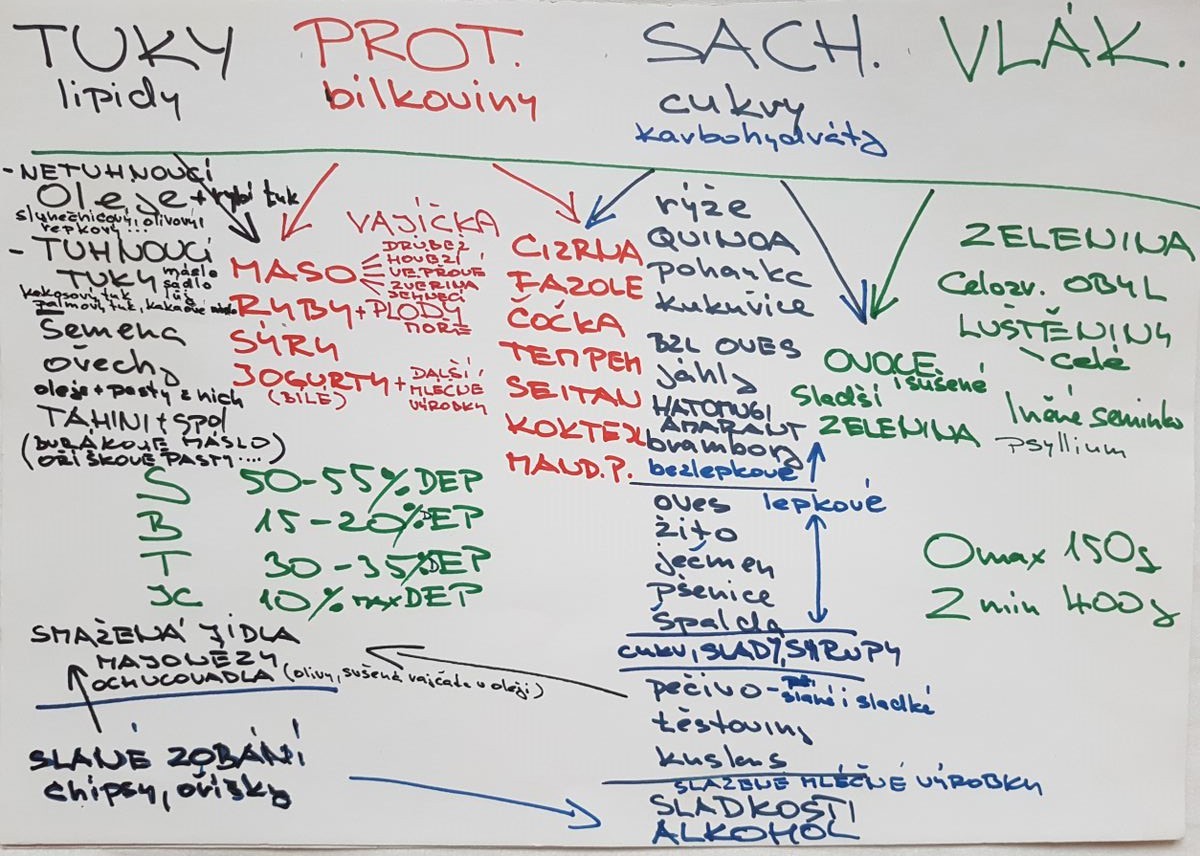 TUKY
lipidy
PROT.
bílkoviny
SACH.
cukry
karbohydráty
VLÁK.
- NETUHNOUCÍ
Oleje + rybí tuk
slunečnicový, olivový,
řepkový ...
- TUHNOUCÍ
TUKY
máslo
sádlo
lůj
kokosový tuk
palmový tuk, kakaové máslo
Semena
ořechy
oleje + pasty z nich
TAHINI + spol
(BURÁKOVÉ MÁSLO)
OŘÍŠKOVÉ PASTY ....)
VAJÍČKA
MASO
DRŮBEŽ
HOVĚZÍ
VEPŘOVÉ
ZVĚŘINA
JEHNĚČÍ
RYBY + PLODY
MOŘE
SÝRY
JOGURTY +
(BÍLÉ)
DALŠÍ
MLÉČNÉ
VÝROBKY
CIZRNA
FAZOLE
ČOČKA
TEMPEH
SEITAN
KOKTEJL
MAND.P.
rýže
QUINOA
pohanka
kukuřice
BZL OVES
jáhly
HATOMUGI
AMARANT
brambory
bezlepkové
lepkové
oves
žito
ječmen
pšenice
špalda
cukr, SLADY, SYRUPY
pečivo -
slané i sladké
těstoviny
kuskus
SLAZENÉ MLÉČNÉ VÝROBKY
SLADKOSTI
ALKOHOL
OVOCE
i sušené
sladší
ZELENINA
ZELENINA
Celozr. OBYL
LUŠTĚNINY
celé
lněné semínko
psyllium
O max 150g
Z min 400g
S 50-55% DEP
B 15-20% DEP
T 30-35% DEP
JC 10% MAX DEP
SMAŽENÁ JÍDLA
MAJONÉZY
OCHUCOVADLA (olivy, sušená rajčata v oleji)
SLANÉ ZOBÁNÍ
chipsy, oříšky